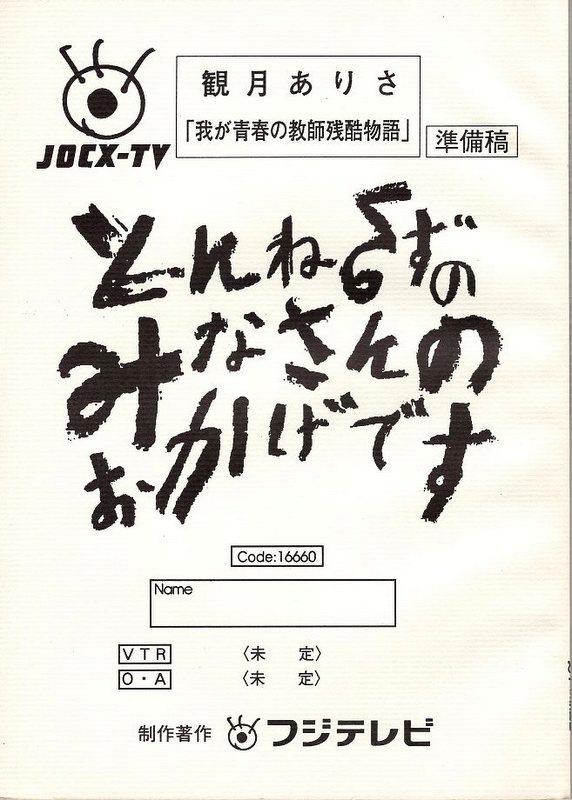 観月ありさ
「我が青春の教師残酷物語」
準備稿
JOCX-TV
とんねるずの
みなさんの
おかげです
Code:16660
Name
VTR 〈未 定〉
O・A 〈未 定〉
制作著作 フジテレビ